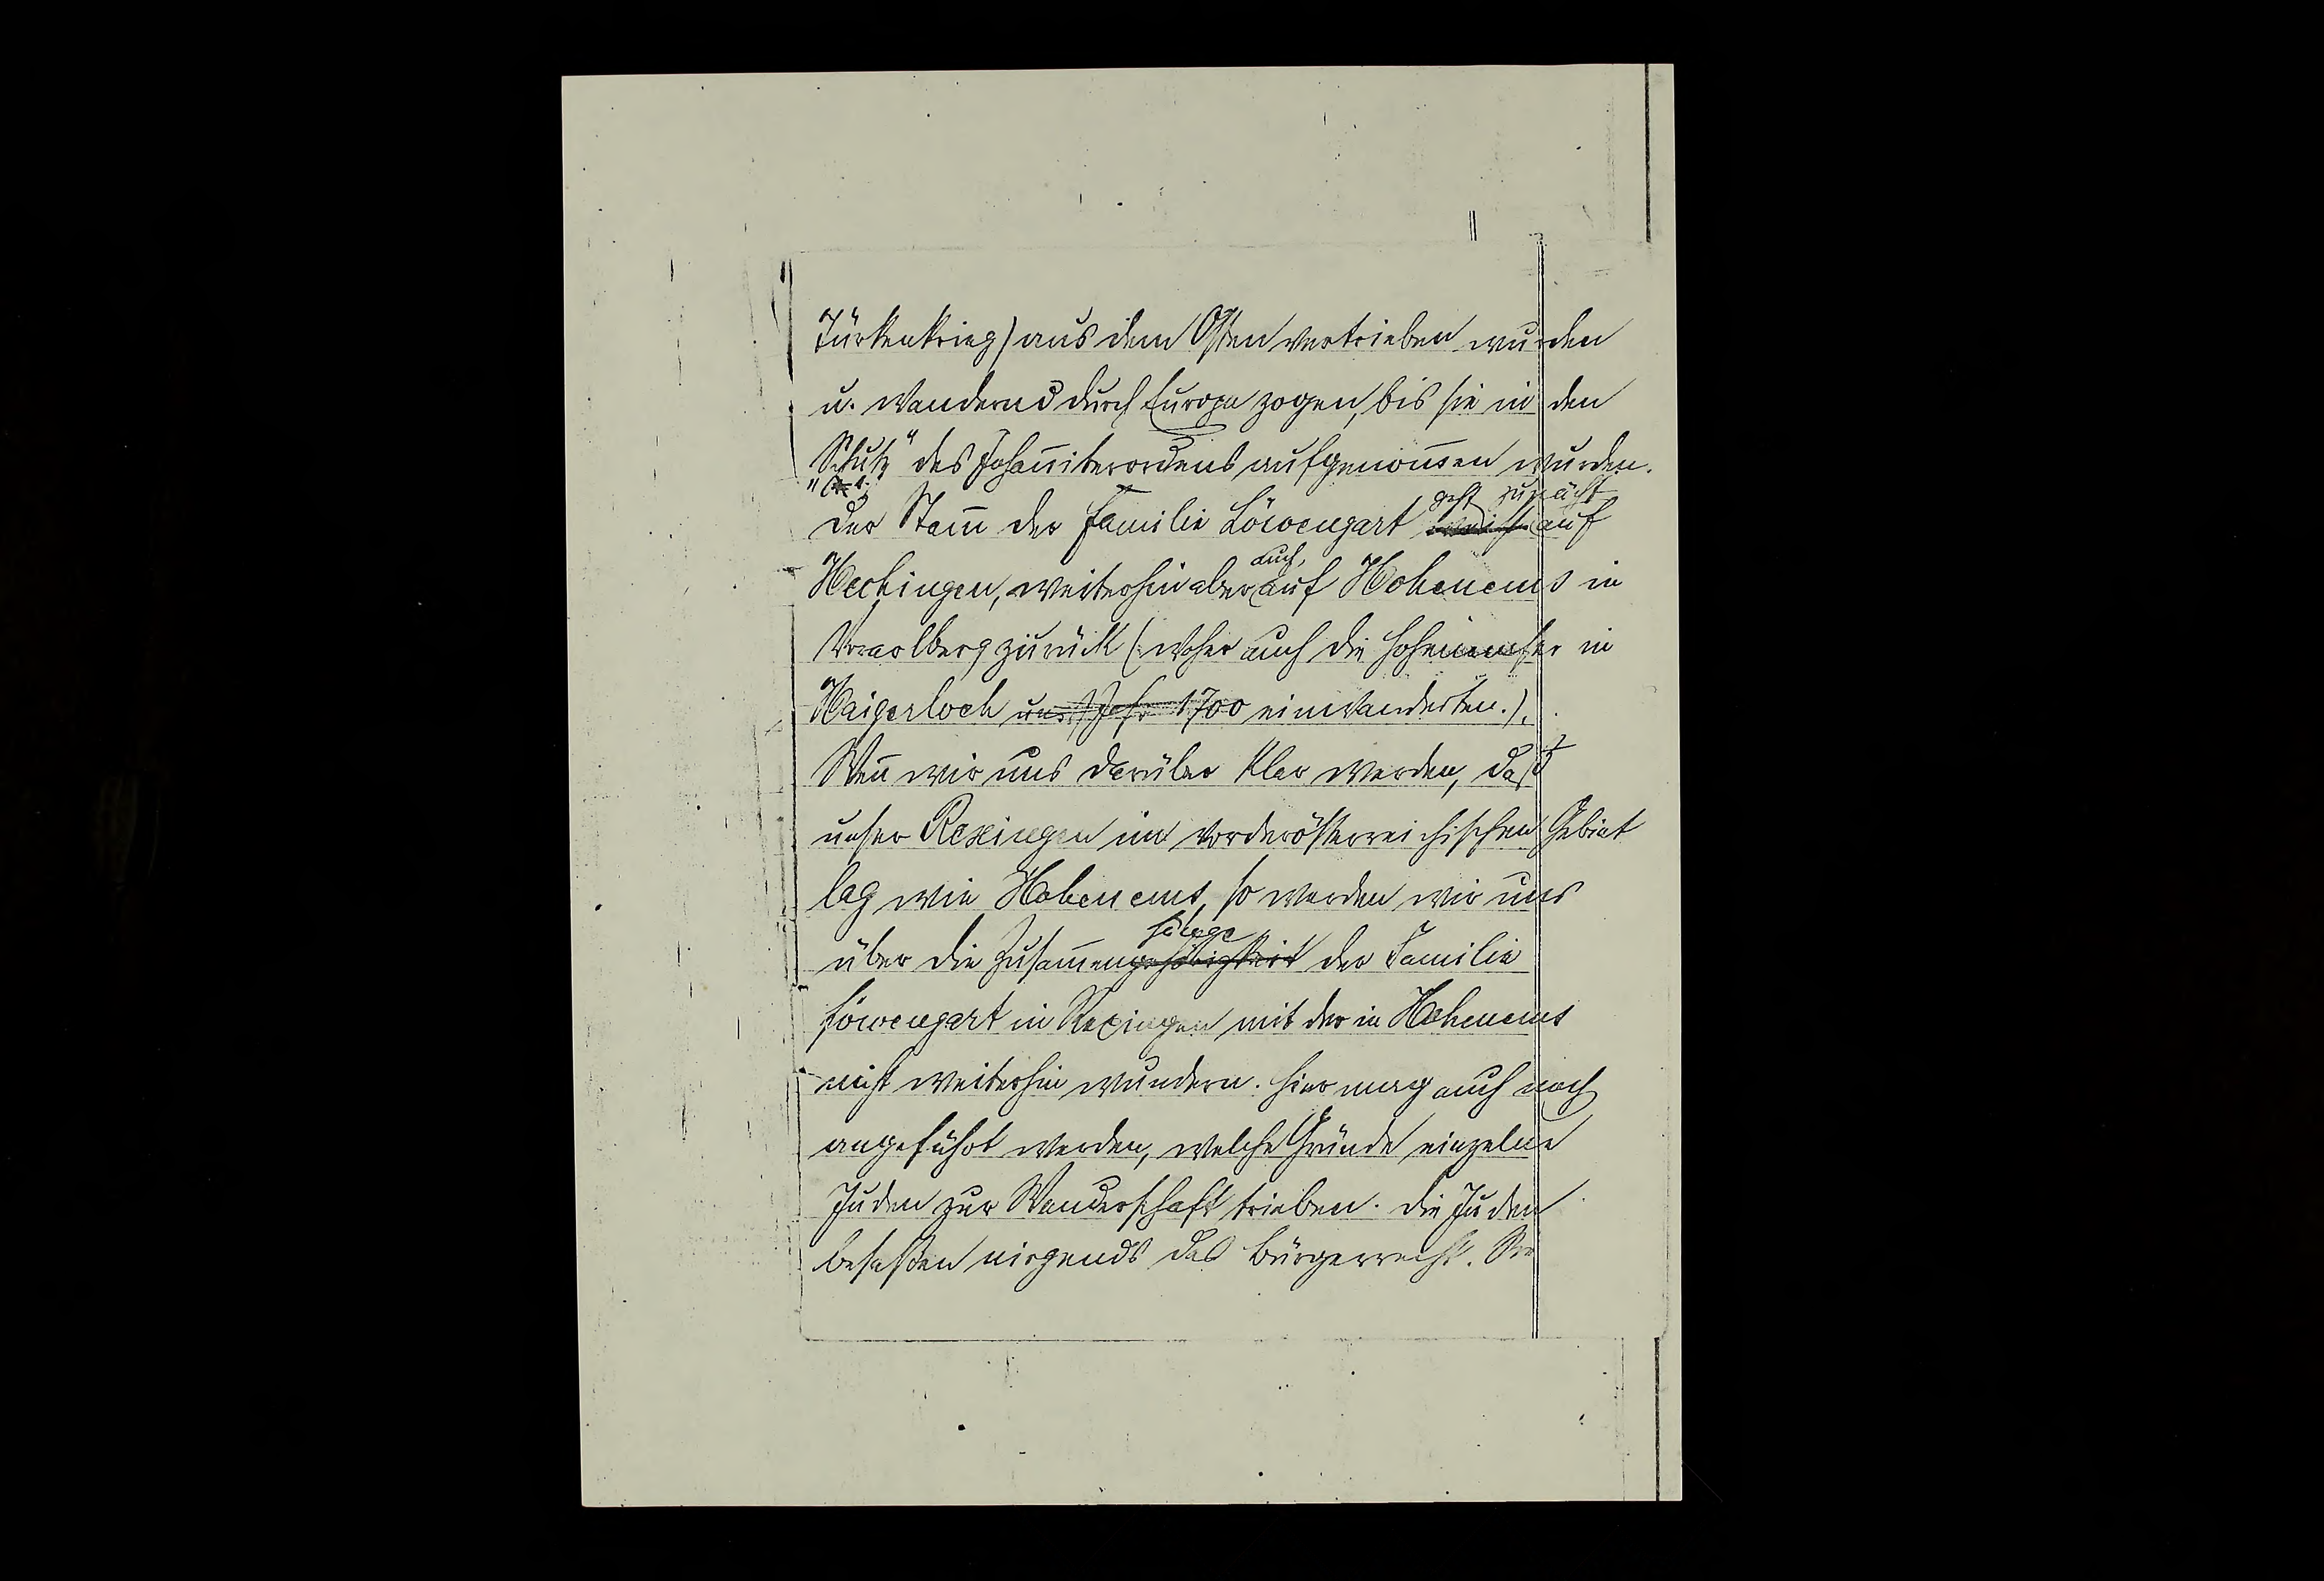 Türkenkrieg) aus dem Osten vertrieben wurden
u. wandernd durch Europa zogen, bis sie in den
"Schutz" des Johan̄iterordens aufgenom̄en wurden.
geht zunächst
Der Stam̄ der Familie Löwengart weist auf
auch
Hechingen, weiterhin aber auf Hohenems in
Vorarlberg zurück (woher auch die Hohenemser in
Haigerloch ums Jahr 1700 einwanderten.).
Wen̄ wir uns darüber klar werden, daß
unser Rexingen im vorderösterreichischen Gebiet
lag wie Hohenems, so werden wir uns
hänge
über die Zusam̄engehörigkeit der Familie
Löwengart in Rexingen mit der in Hohenems
nicht weiterhin wundern. Hier mag auch noch
angeführt werden, welche Gründe einzelne
Juden zur Wanderschaft trieben. Die Juden
besaßen nirgends das Bürgerrecht. Sie